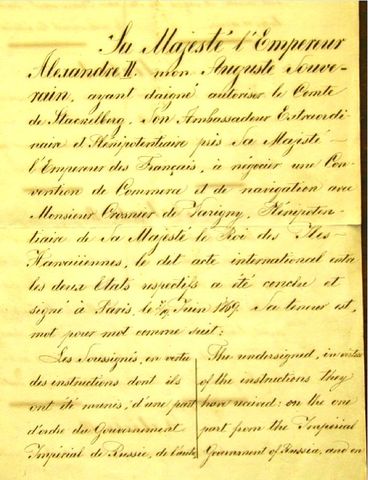 Sa Majesté l'Empereur
Alexandre II. mon Auguste Souve-
rain, ayant daigné autoriser le Comte
de Stackelberg, Son Ambassadeur Extraordi-
naire et Plénipotentiaire près Sa Majesté
l'Empereur des Français, à négocier une Con-
vention de Commerce et de navigation avec
Monsieur Crosnier de Varigny, Plénipoten-
tiaire de Sa Majesté le Roi des Iles-
Hawaiiennes, le dit acte international entre
les deux Etats respectifs a été conclu et
signé à Paris, le 7/19 Juin 1869. Sa teneur est,
mot pour mot comme suit:
Les Soussignés, en vertu
des instructions dont ils
ont été munis, d'une part
d'ordre du Gouvernement
Impérial de Russie, de l'autre
The undersigned, in virtue
of the instructions they
have received: on the one
part from the Imperial
Government of Russia, and on